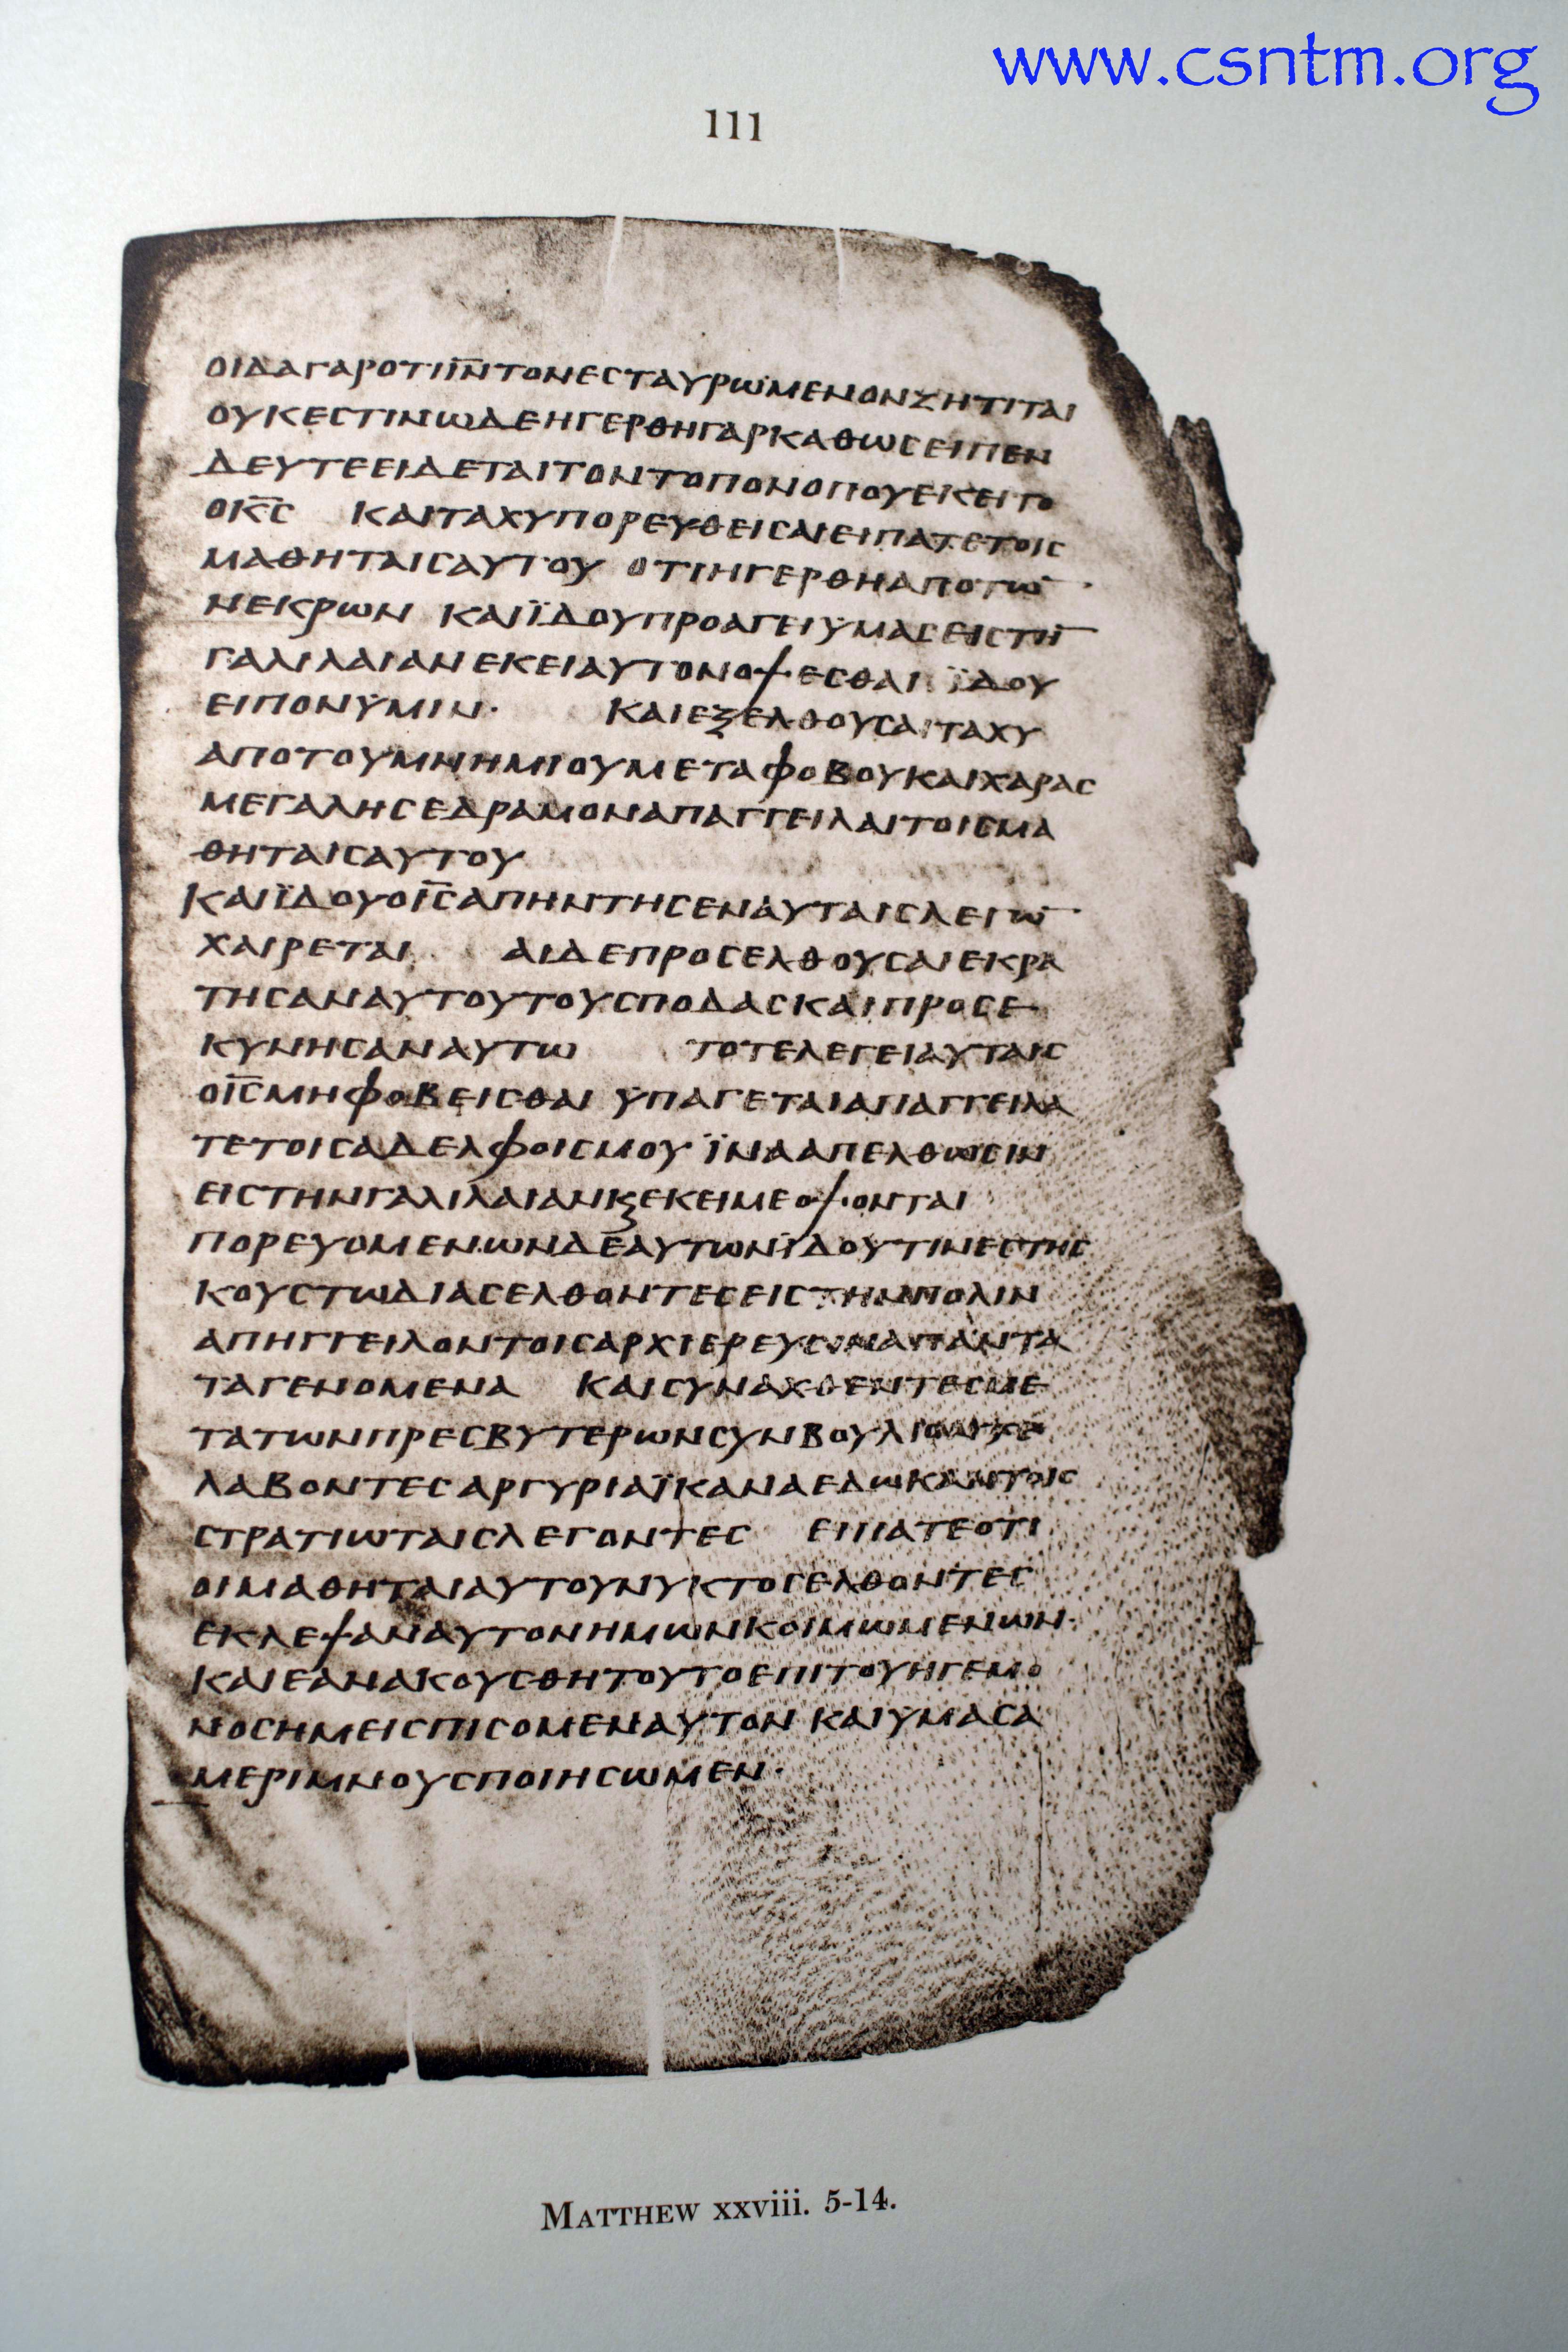 www.csntm.org
111
ΟΙΔΑΓΑΡΟΤΙΙ̅Ν̅ΤΟΝΕϹΤΑΥΡΩΜΕΝΟΝΖΗΤΙΤΑΙ
ΟΥΚΕϹΤΙΝΩΔΕΗΓΕΡΘΗΓΑΡΚΑΘΩϹΕΙΠΕΝ
ΔΕΥΤΕΕΙΔΕΤΑΙΤΟΝΤΟΠΟΝΟΠΟΥΕΚΕΙΤΟ
ΟΚ̅Ϲ̅ ΚΑΙΤΑΧΥΠΟΡΕΥΘΕΙϹΑΙΕΙΠΑΤΕΤΟΙϹ
ΜΑΘΗΤΑΙϹΑΥΤΟΥ ΟΤΙΗΓΕΡΘΗΑΠΟΤΩ̅
ΝΕΚΡΩΝ ΚΑΙΪΔΟΥΠΡΟΑΓΕΙΫΜΑϹΕΙϹΤΗ̅
ΓΑΛΙΛΑΙΑΝΕΚΕΙΑΥΤΟΝΟΨΕϹΘΑΙ ΪΔΟΥ
ΕΙΠΟΝΫΜΙΝ· ΚΑΙΕΞΕΛΘΟΥϹΑΙΤΑΧΥ
ΑΠΟΤΟΥΜΝΗΜΙΟΥΜΕΤΑΦΟΒΟΥΚΑΙΧΑΡΑϹ
ΜΕΓΑΛΗϹΕΔΡΑΜΟΝΑΠΑΓΓΕΙΛΑΙΤΟΙϹΜΑ
ΘΗΤΑΙϹΑΥΤΟΥ
ΚΑΙΪΔΟΥΟΙ̅Ϲ̅ΑΠΗΝΤΗϹΕΝΑΥΤΑΙϹΛΕΓΩ̅
ΧΑΙΡΕΤΑΙ ΑΙΔΕΠΡΟϹΕΛΘΟΥϹΑΙΕΚΡΑ
ΤΗϹΑΝΑΥΤΟΥΤΟΥϹΠΟΔΑϹΚΑΙΠΡΟϹΕ
ΚΥΝΗϹΑΝΑΥΤΩ ΤΟΤΕΛΕΓΕΙΑΥΤΑΙϹ
ΟΙ̅Ϲ̅ΜΗΦΟΒΕΙϹΘΑΙ ΫΠΑΓΕΤΑΙΑΠΑΓΓΕΙΛΑ
ΤΕΤΟΙϹΑΔΕΛΦΟΙϹΜΟΥ ΪΝΑΑΠΕΛΘΩϹΙΝ
ΕΙϹΤΗΝΓΑΛΙΛΑΙΑΝΚϗΕΚΕΙΜΕΟΨΟΝΤΑΙ
ΠΟΡΕΥΟΜΕΝΩΝΔΕΑΥΤΩΝΪΔΟΥΤΙΝΕϹΤΗϹ
ΚΟΥϹΤΩΔΙΑϹΕΛΘΟΝΤΕϹΕΙϹΤΗΝΠΟΛΙΝ
ΑΠΗΓΓΕΙΛΟΝΤΟΙϹΑΡΧΙΕΡΕΥϹΙΝΑΠΑΝΤΑ
ΤΑΓΕΝΟΜΕΝΑ ΚΑΙϹΥΝΑΧΘΕΝΤΕϹΜΕ
ΤΑΤΩΝΠΡΕϹΒΥΤΕΡΩΝϹΥΝΒΟΥΛΙΟΝΤΕ
ΛΑΒΟΝΤΕϹΑΡΓΥΡΙΑΪΚΑΝΑΕΔΩΚΑΝΤΟΙϹ
ϹΤΡΑΤΙΩΤΑΙϹΛΕΓΟΝΤΕϹ ΕΙΠΑΤΕΟΤΙ
ΟΙΜΑΘΗΤΑΙΑΥΤΟΥΝΥΚΤΟϹΕΛΘΟΝΤΕϹ
ΕΚΛΕΨΑΝΑΥΤΟΝΗΜΩΝΚΟΙΜΩΜΕΝΩΝ·
ΚΑΙΕΑΝΑΚΟΥϹΘΗΤΟΥΤΟΕΠΙΤΟΥΗΓΕΜΟ
ΝΟϹΗΜΕΙϹΠΙϹΟΜΕΝΑΥΤΟΝ ΚΑΙΥΜΑϹΑ
ΜΕΡΙΜΝΟΥϹΠΟΙΗϹΩΜΕΝ·
MATTHEW xxviii. 5-14.